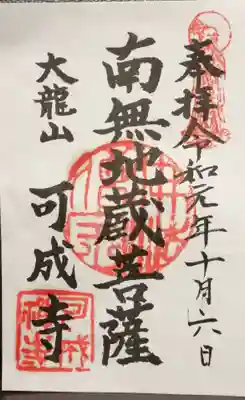 奉拝 令和元年十月六日
南無地蔵菩薩
大龍山
可成寺